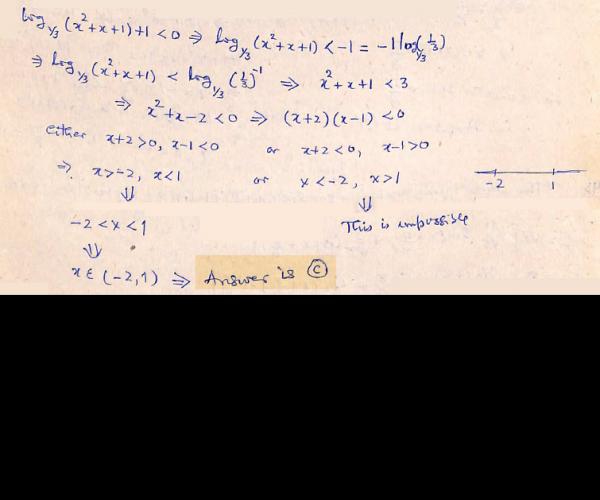 log₁/₃(x²+x+1)+1 < 0 ⇒ log₁/₃(x²+x+1) < -1 = -1 log₁/₃(1/3)
⇒ log₁/₃(x²+x+1) < log₁/₃(1/3)⁻¹ ⇒ x²+x+1 < 3
⇒ x²+x-2 < 0 ⇒ (x+2)(x-1) < 0
either x+2>0, x-1<0 or x+2<0, x-1>0
⇒ x>-2, x<1 or x<-2, x>1
-2 1
⇓ ⇓
-2<x<1 This is impossible
⇓
x ∈ (-2,1) ⇒ Answer is Ⓒ